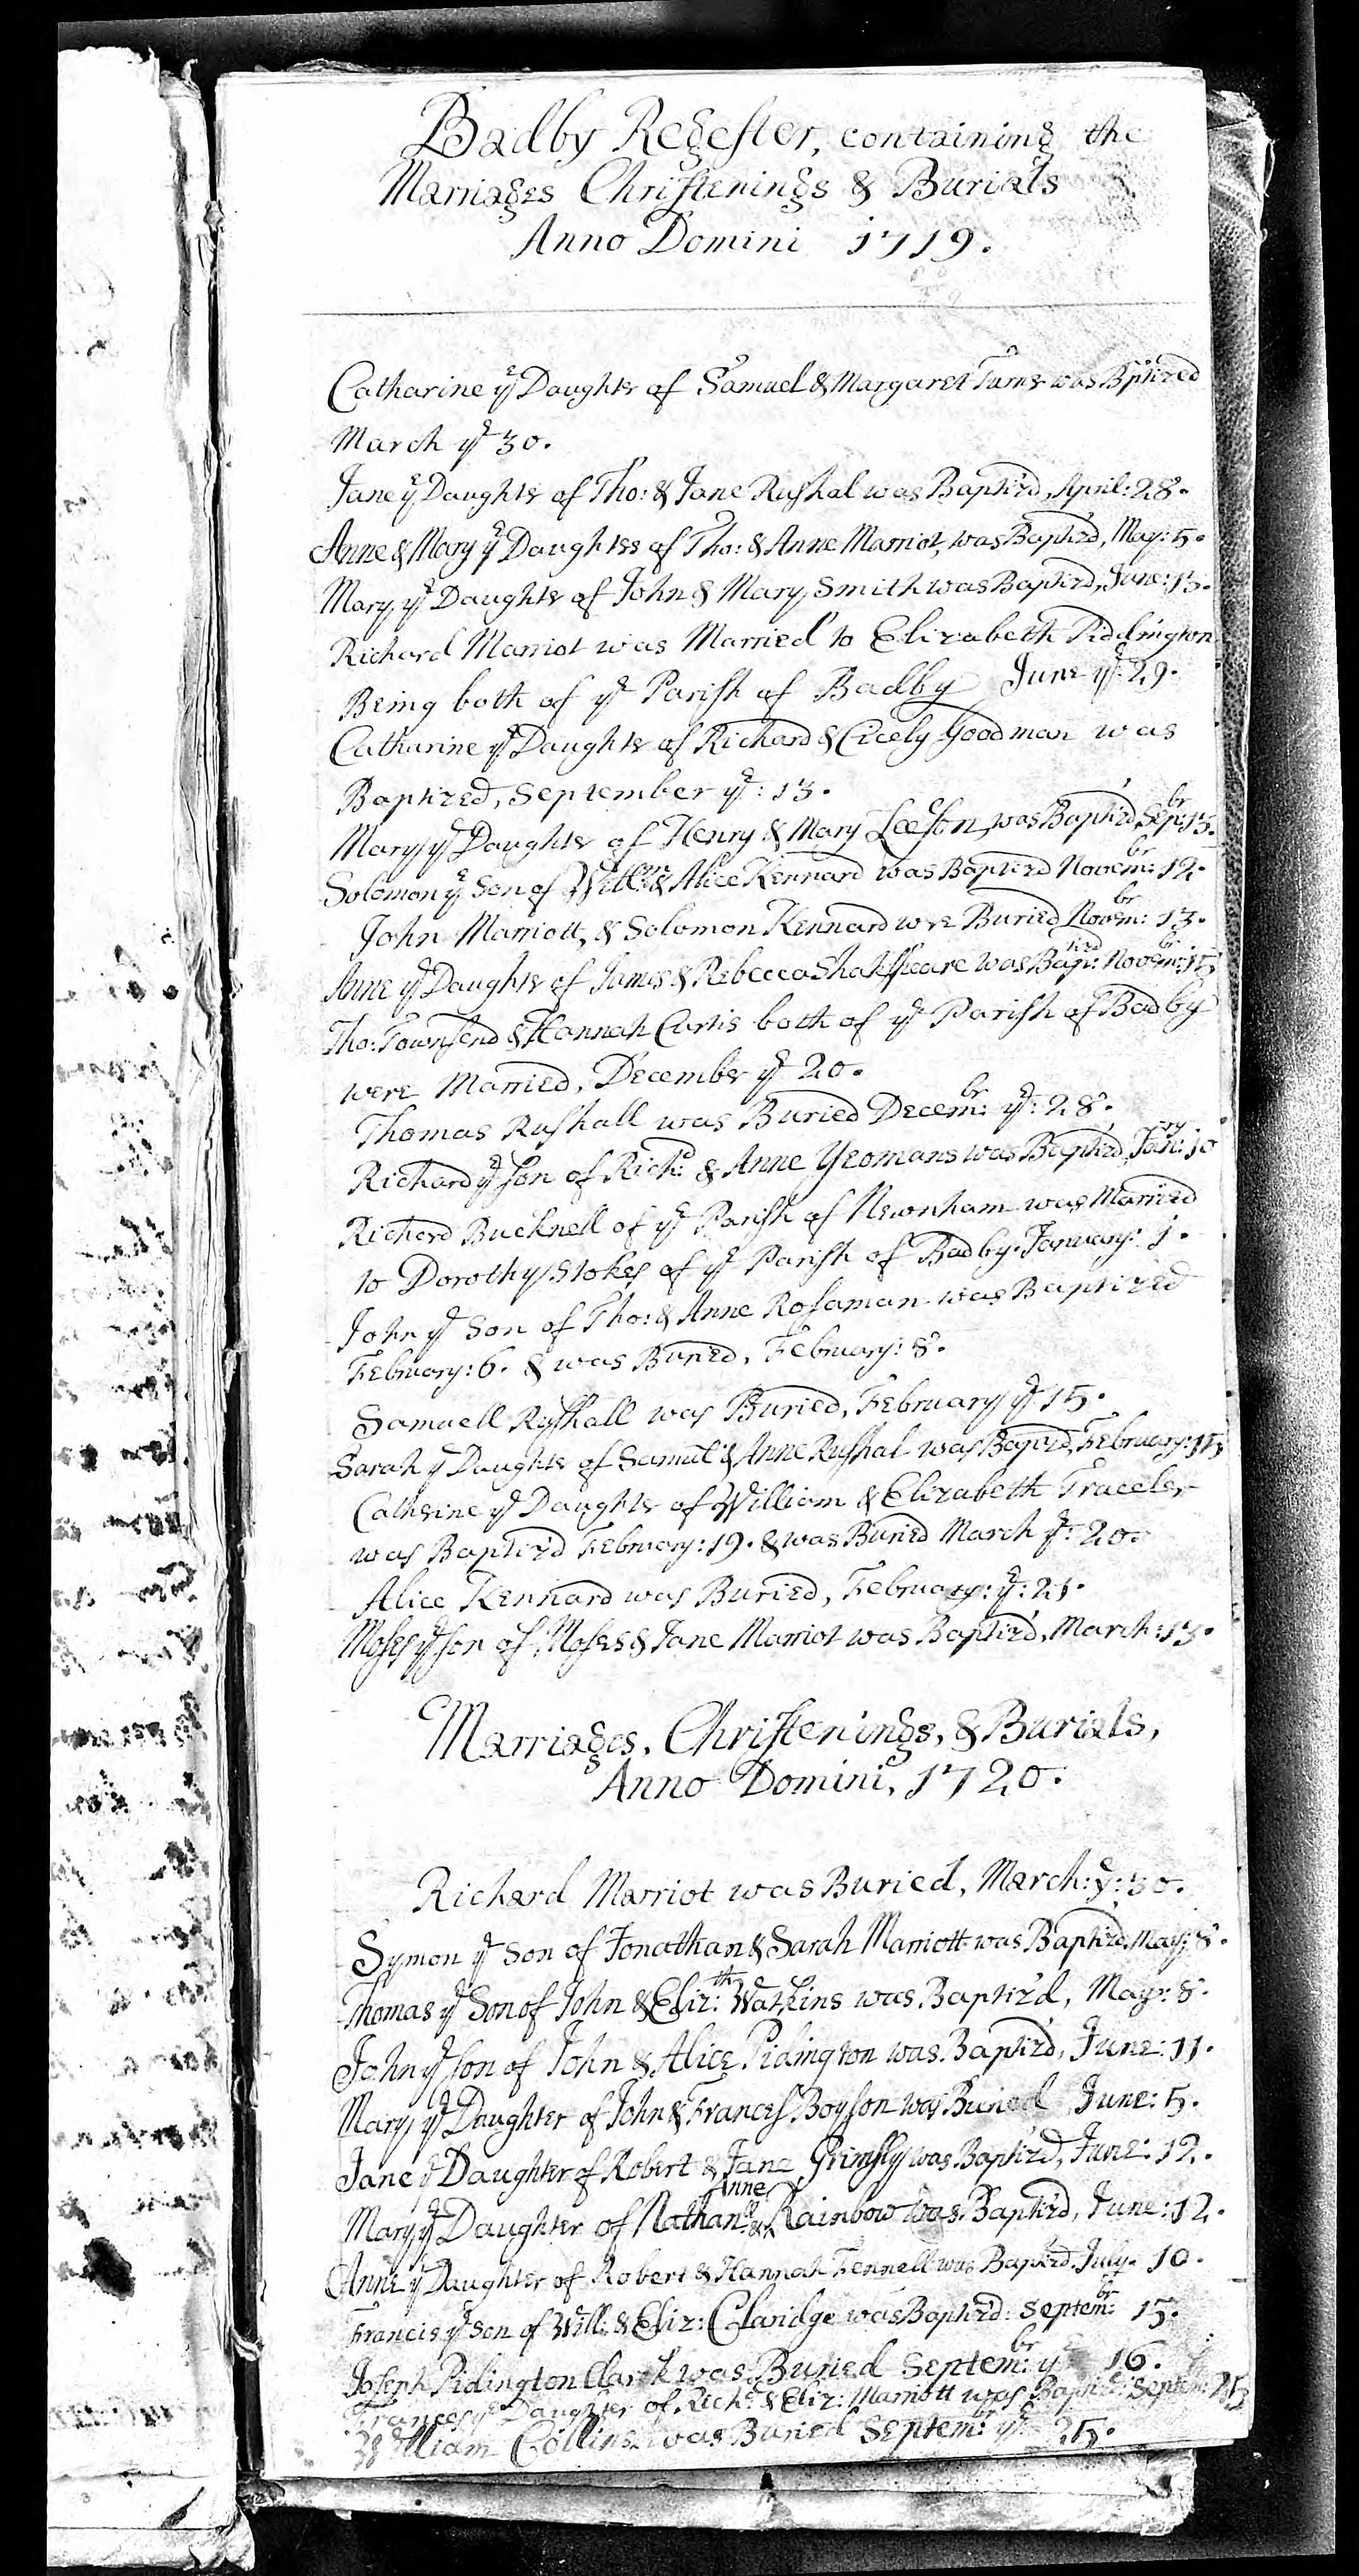 Badby Regester, containing the
Marriages Christenings & Burials
Anno Domini 1719.
Catharine ye Daughter of Samuel & Margaret Turner was Bptized
March ye 30.
Jane ye Daughter of Tho: & Jane Rushal was Baptiz'd, April: 28.
Anne & Mary ye Daughters of Tho: & Anne Marriot, was Baptiz'd, May: 5.
Mary ye Daughter of John & Mary Smith was Baptiz'd, June: 13.
Richard Marriot was Married to Elizabeth Piddington
Being both of ye Parish of Badby June ye: 29.
Catharine ye Daughter of Richard & Cicely Goodman was
Baptized, September ye: 13.
Mary ye Daughter of Henry & Mary Leeson, was Baptiz'd, Sepbr: 13.
Solomon ye Son of Willm & Alice Kennard was Baptiz'd Novembr: 12.
John Marriott, & Solomon Kennard were Buried Novembr: 13.
Anne ye Daughter of James & Rebecca Shakspeare was Baptized: Novembr: 15
Tho: Townsend & Hannah Curtis both of ye Parish of Badby
were Married, December ye 20.
Thomas Rushall was Buried Decembr: ye: 28.
Richard ye son of Richd: & Anne Yeomans was Baptiz'd, Janry: 10
Richard Bucknell of ye Parish of Newnham was Married
to Dorothy Stokes of ye Parish of Badby. January: 1.
John ye Son of Tho: & Anne Rosaman was Baptized
February: 6. & was Buried, February: 8.
Samuell Rushall was Buried, February ye 15.
Sarah ye Daughter of Samuel & Anne Rushal was Baptiz'd, February: 15
Catherine ye Daughter of William & Elizabeth Traceler
was Baptiz'd February: 19. & was Buried March ye: 20.
Alice Kennard was Buried, February: ye: 21.
Moses ye son of Moses & Jane Marriot was Baptiz'd, March: 13.
Marriages, Christenings, & Burials,
Anno Domini, 1720.
Richard Marriot was Buried, March: ye: 30.
Symon ye Son of Jonathan & Sarah Marriott was Baptiz'd, May: 8.
Thomas ye Son of John & Elizth: Watkins was Baptiz'd, May: 8.
John ye son of John & Alice Pidington was Baptiz'd, June: 11.
Mary ye Daughter of John & Frances Boyson was Buried June: 5.
Jane ye Daughter of Robert & Jane Grimsly was Baptiz'd, June: 12.
Mary ye Daughter of Nathanll & Anne Rainbow was Baptiz'd, June: 12.
Anne ye Daughter of Robert & Hannah Fennell was Baptiz'd July. 10.
Francis ye Son of Will: & Eliz: Claridge was Baptiz'd: Septembr: 15.
Joseph Pidington Clark was Buried Septembr: ye 16.
Frances ye Daughter of Richd & Eliz: Marriott was Baptiz'd: Septem: 25
William Collins was Buried Septembr: ye 25.